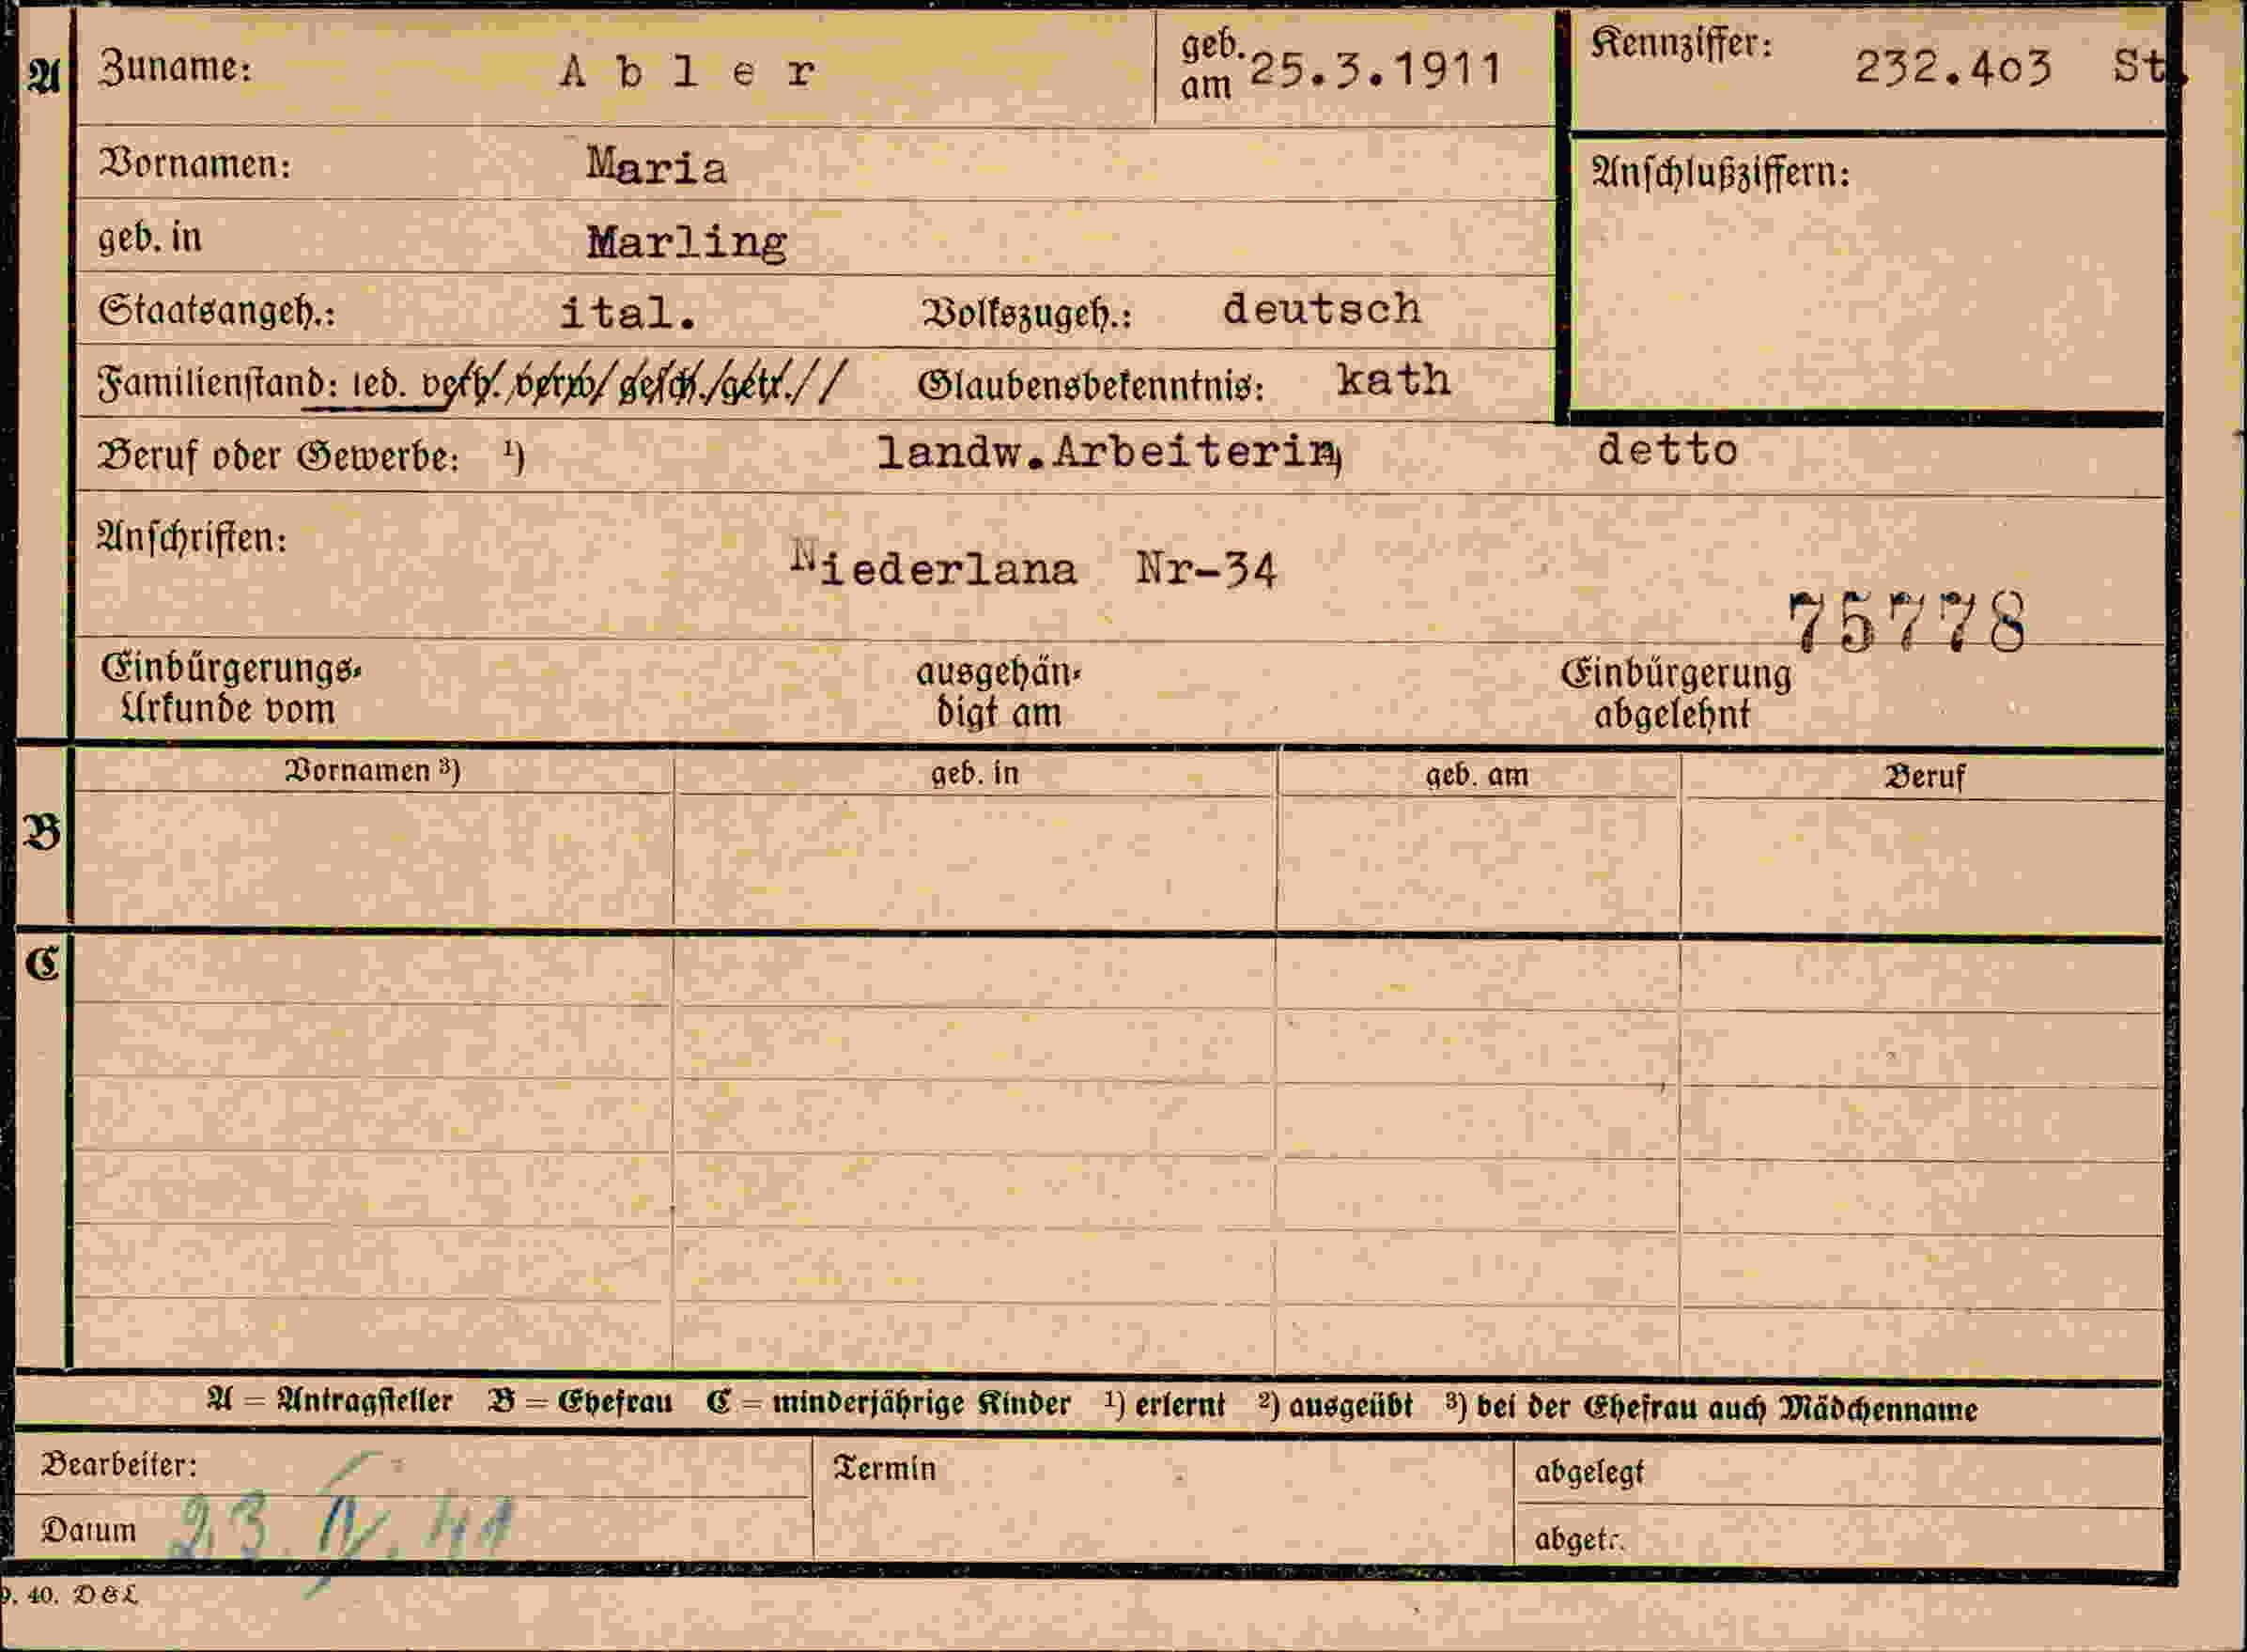 A Zuname: Abler geb. am 25.3.1911 Kennziffer: 232.403 St.
Vornamen: Maria Anschlußziffern:
geb. in Marling
Staatsangeh.: ital. Volkszugeh.: deutsch
Familienstand: led. verh./verw/gesch./getr.// Glaubensbekenntnis: kath
Beruf oder Gewerbe: ¹) landw.Arbeiterin, detto
Anschriften: Niederlana Nr-34
75778
Einbürgerungs- ausgehän- Einbürgerung
Urkunde vom digt am abgelehnt
Vornamen ³) geb. in geb. am Beruf
B
C
A = Antragsteller B = Ehefrau C = minderjährige Kinder ¹) erlernt ²) ausgeübt ³) bei der Ehefrau auch Mädchenname
Bearbeiter: Termin abgelegt
Datum 23. IV. 41 abgetr.
9. 40. D&L